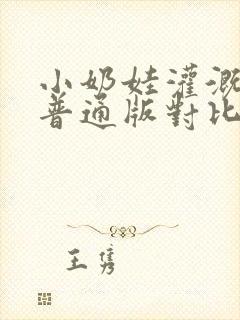 小奶娃灌溉
普通版對比
王隽